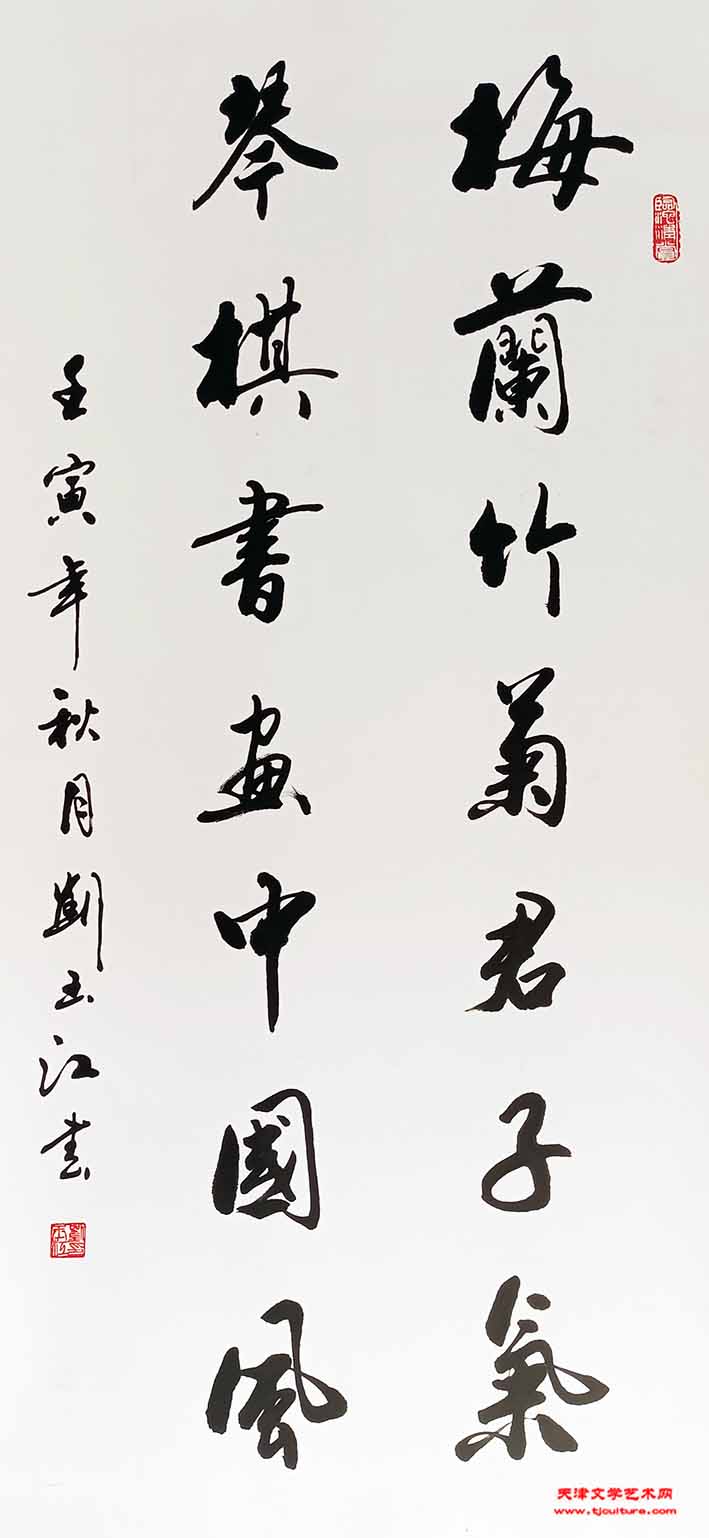 梅蘭竹菊君子氣
琴棋書畫中國風
壬寅年秋月劉玉江書
天津文学艺术网
www.tjculture.com